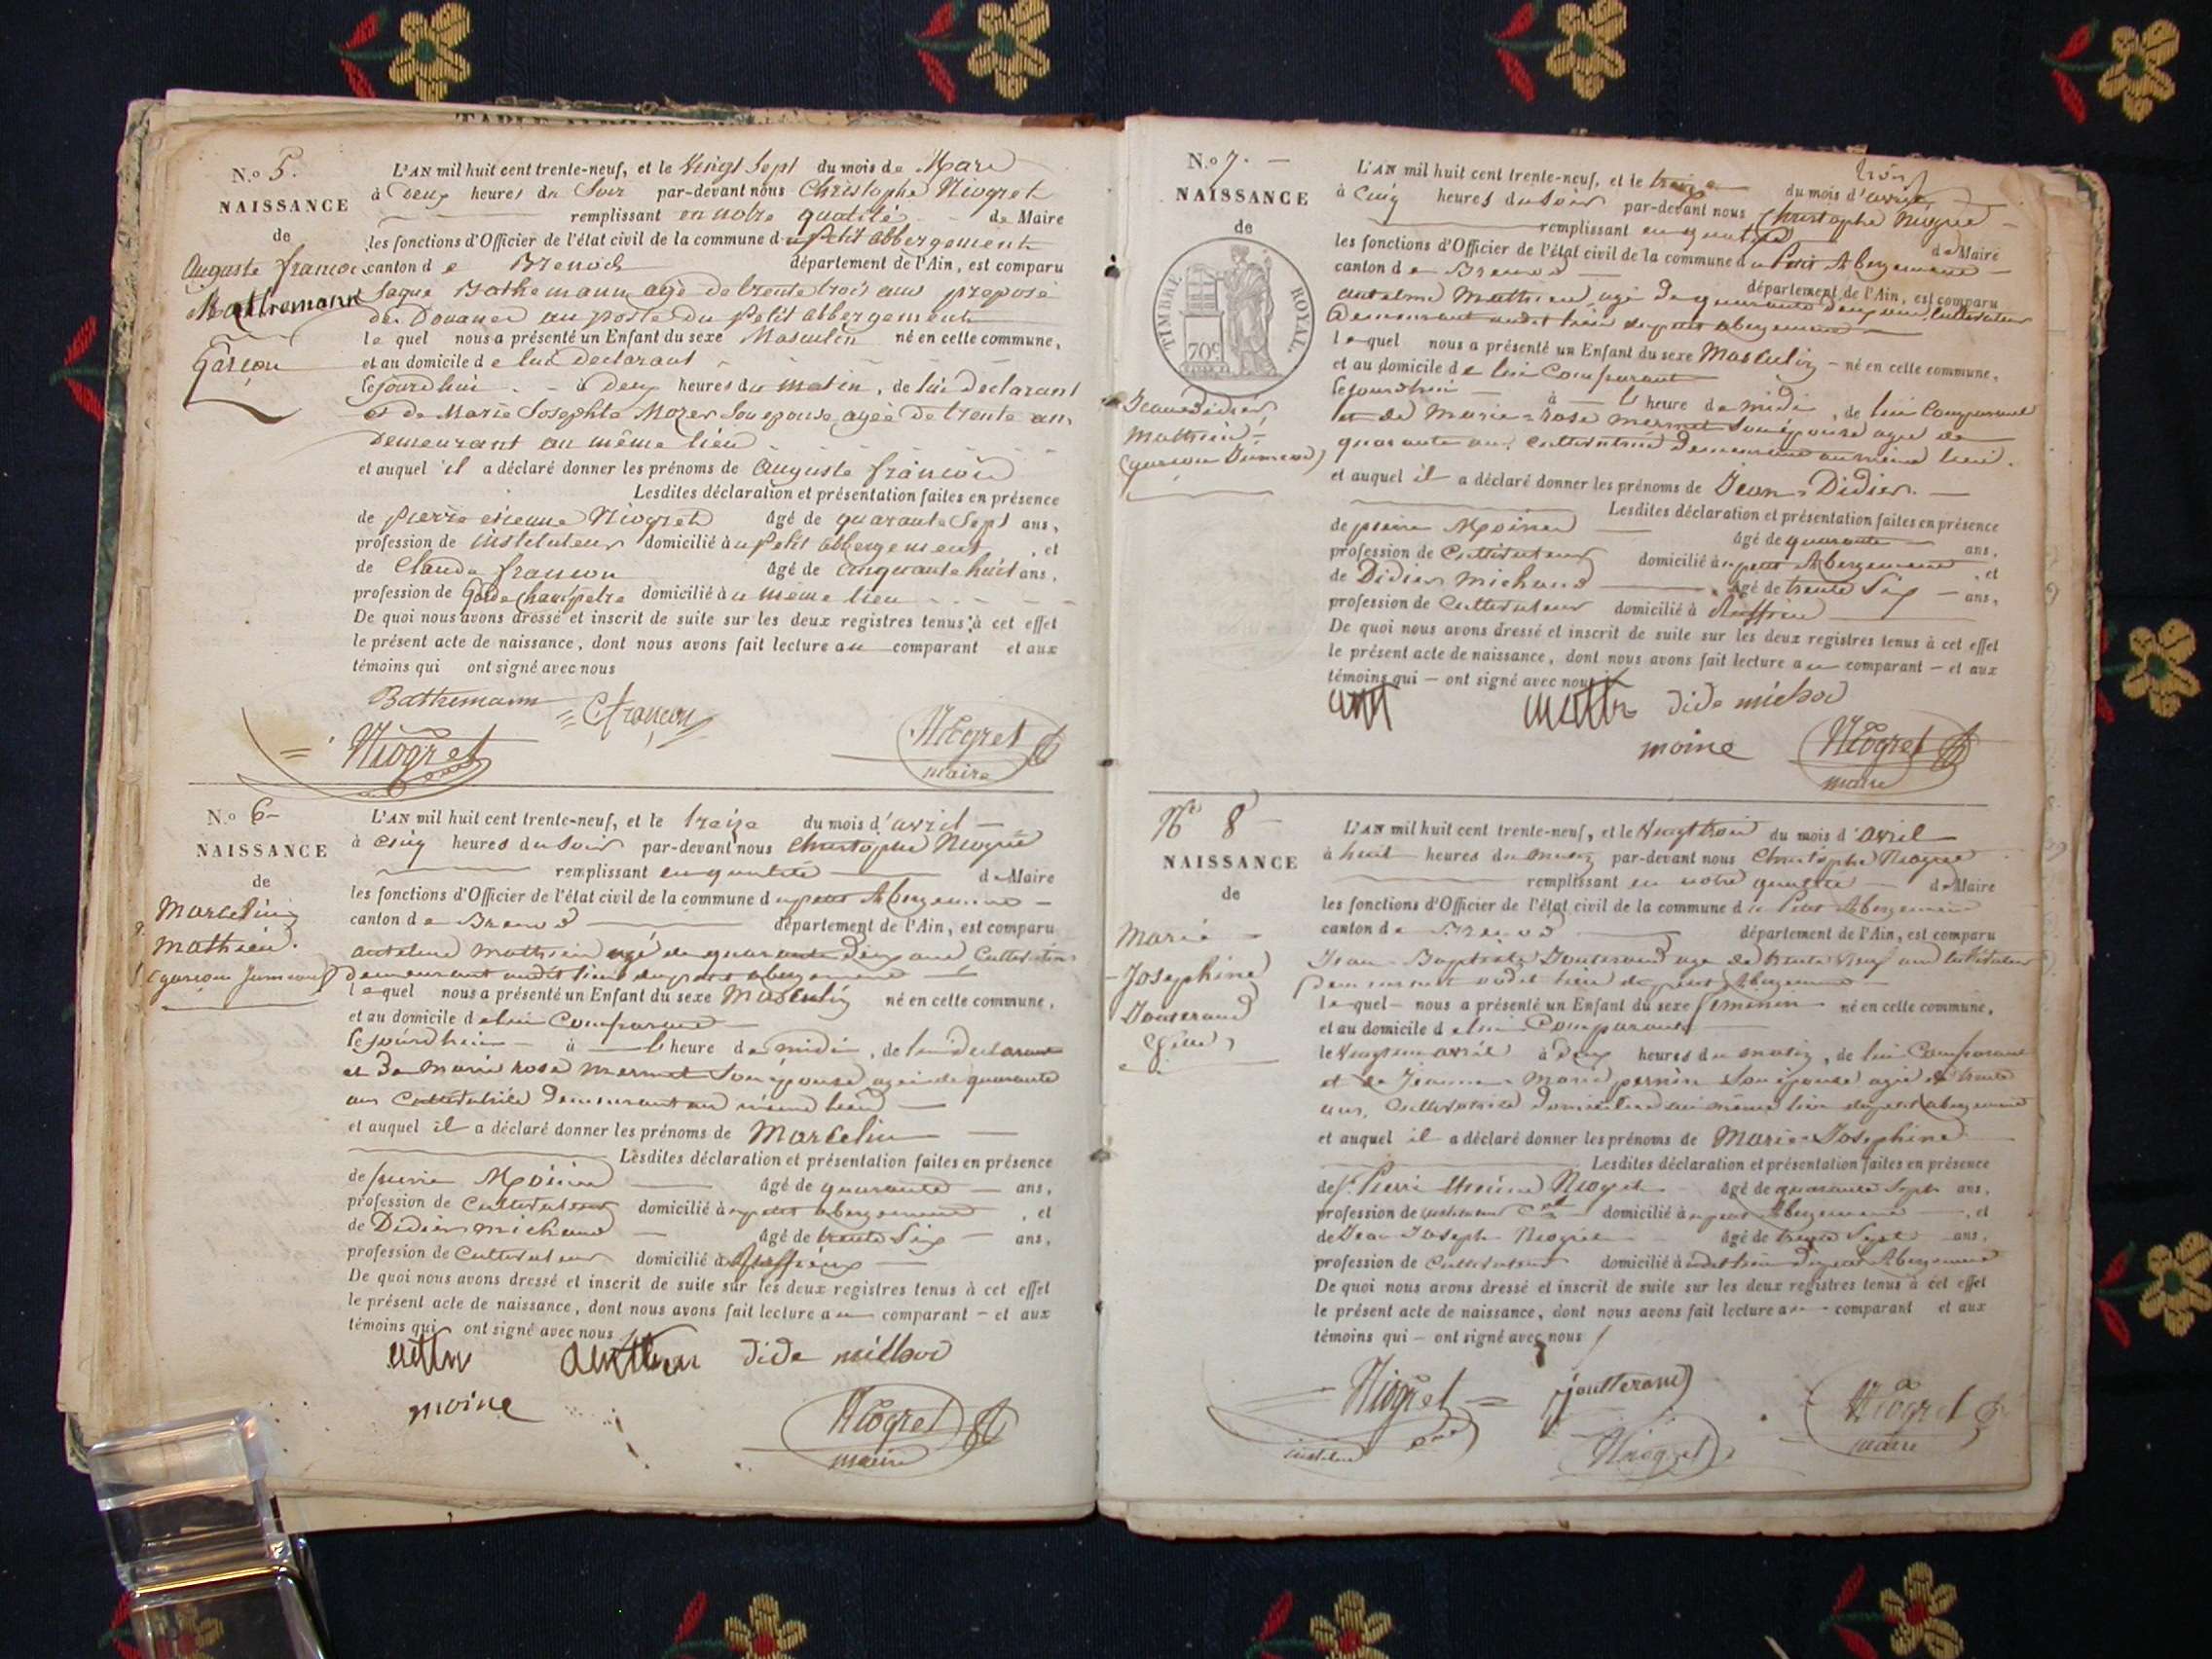 N.o 5.
NAISSANCE
de
Auguste françois
Bathremann
Garçon
L'AN mil huit cent trente-neuf, et le Vingt Sept du mois de Mars
à Deux heures du Soir par-devant nous Christophe Niogret
remplissant en notre qualité de Maire
les fonctions d'Officier de l'état civil de la commune du Petit abbergement
canton de Brenod département de l'Ain, est comparu
Jaque Bathemann agé de trente trois ans préposé
des Douanes au poste du petit abbergement
lequel nous a présenté un Enfant du sexe Masculin né en cette commune,
et au domicile de lui Declarant
cejourdhui à deux heures du matin, de lui Declarant
et de Marie Josephte Mozer son epouse, agée de trente ans
demeurant au même lieu
et auquel il a déclaré donner les prénoms de Auguste françois
Lesdites déclaration et présentation faites en présence
de pierre etienne Niogret âgé de quarante Sept ans,
profession de instituteur domicilié au petit abbergement, et
de Claude françon âgé de cinquante huit ans,
profession de Garde Champetre domicilié au même lieu
De quoi nous avons dressé et inscrit de suite sur les deux registres tenus à cet effet
le présent acte de naissance, dont nous avons fait lecture au comparant et aux
témoins qui ont signé avec nous
Bathemann C françon
Niogret Niogret
maire
N.o 6
NAISSANCE
de
Marcelin
mathieu.
(garçon Jumeau)
L'AN mil huit cent trente-neuf, et le treize du mois d'avril
à cinq heures du soir par-devant nous Christophe Niogret
remplissant en qualité de Maire
les fonctions d'Officier de l'état civil de la commune du petit Abergement
canton de Brenod département de l'Ain, est comparu
antelme Mathieu agé de quarante deux ans Cultivateur
demeurant audit lieu du petit abergement
lequel nous a présenté un Enfant du sexe Masculin né en cette commune,
et au domicile de lui Comparant
cejourdhui à l'heure de midi, de lui declarant
et de Marie rose Mermet son épouse agée de quarante
ans Cultivatrice demeurant au même lieu
et auquel il a déclaré donner les prénoms de Marcelin
Lesdites déclaration et présentation faites en présence
de pierre Moine âgé de quarante ans,
profession de Cultivateur domicilié au petit abergement, et
de Didier michaud âgé de trente Six ans,
profession de Cultivateur domicilié à Ruffieux
De quoi nous avons dressé et inscrit de suite sur les deux registres tenus à cet effet
le présent acte de naissance, dont nous avons fait lecture au comparant et aux
témoins qui ont signé avec nous
dide michod
moine
Niogret
maire
N.o 7.
NAISSANCE
de
TIMBRE ROYAL.
70c
Jean Didier
Mathieu
(garçon Jumeau)
L'AN mil huit cent trente-neuf, et le treize du mois d'avril
à Cinq heures du soir par-devant nous Christophe Niogret
remplissant en qualité de Maire
les fonctions d'Officier de l'état civil de la commune du Petit Abergement
canton de Brenod département de l'Ain, est comparu
antelme Mathieu agé de quarante deux ans Cultivateur
demeurant audit lieu du petit abergement
lequel nous a présenté un Enfant du sexe Masculin né en cette commune,
et au domicile de lui Comparant
cejourdhui à l'heure de midi, de lui Comparant
et de Marie-rose mermet son épouse agée de
quarante ans Cultivatrice demeurant au même lieu.
et auquel il a déclaré donner les prénoms de Jean-Didier.
Lesdites déclaration et présentation faites en présence
de pierre Moine âgé de quarante ans,
profession de Cultivateur domicilié au petit Abergement, et
de Didier michaud âgé de trente Six ans,
profession de Cultivateur domicilié à Ruffieu
De quoi nous avons dressé et inscrit de suite sur les deux registres tenus à cet effet
le présent acte de naissance, dont nous avons fait lecture au comparant et aux
témoins qui ont signé avec nous
dide michod
moine Niogret
maire
No 8
NAISSANCE
de
Marie
Josephine
Jouterand
fille
L'AN mil huit cent trente-neuf, et le Vingt trois du mois d'avril
à huit heures du matin par-devant nous Christophe Niogret
remplissant en notre qualité de Maire
les fonctions d'Officier de l'état civil de la commune du Petit Abergement
canton de Brenod département de l'Ain, est comparu
Jean-Baptiste Jouterand agé de trente ans Cultivateur
demeurant audit lieu du petit Abergement
lequel nous a présenté un Enfant du sexe feminin né en cette commune,
et au domicile de lui Comparant
le avril à deux heures du matin, de lui Comparant
et de Jeanne-Marie perrin son épouse agée de trente
ans, Cultivatrice domiciliée au même lieu du petit abergement
et auquel il a déclaré donner les prénoms de Marie-Josephine
Lesdites déclaration et présentation faites en présence
de Pierre Etienne Niogret âgé de quarante Sept ans,
profession de instituteur domicilié au petit Abergement, et
de Jean Joseph Niogret âgé de trente Sept ans,
profession de Cultivateur domicilié audit lieu du petit Abergement
De quoi nous avons dressé et inscrit de suite sur les deux registres tenus à cet effet
le présent acte de naissance, dont nous avons fait lecture au comparant et aux
témoins qui ont signé avec nous
Niogret joutterand Niogret
Niogret maire